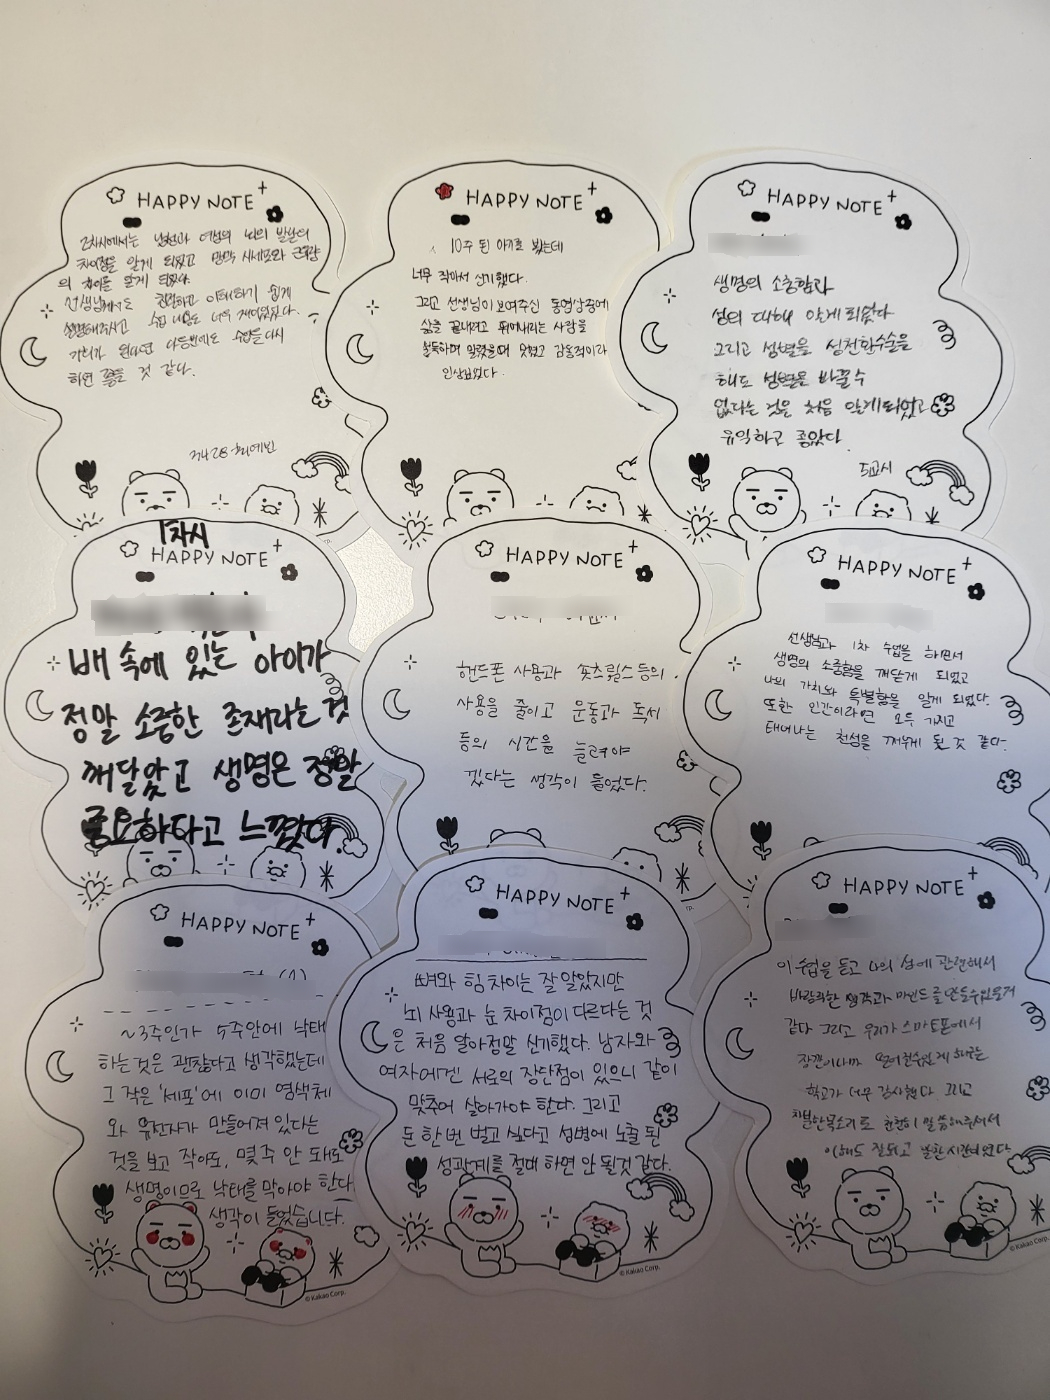 HAPPY NOTE
2차시에서는 남성과 여성의 뇌의 발달의
차이점을 알게 되었고 망막 시세포와 근육량
의 차이를 알게 되었다.
선생님께서도 친절하고 이해하기 쉽게
설명해주시고 수업 내용도 너무 재미있었다.
기회가 된다면 다음번에도 수업을 다시
하면 좋을 것 같다.
HAPPY NOTE
10주 된 아기를 봤는데
너무 작아서 신기했다.
그리고 선생님이 보여주신 동영상중에
삶을 끝내려고 뛰어내리는 사람을
설득하며 말렸을때 멋졌고 감동적이라
인상깊었다.
HAPPY NOTE
생명의 소중함과
성의 대해 알게되었다
그리고 성별을 성전환수술을
해도 성별을 바꿀수
없다는 것을 처음 알게되었고
유익하고 좋았다.
5교시
1차시
HAPPY NOTE
배 속에 있는 아이가
정말 소중한 존재라는 것
깨달았고 생명은 정말
중요하다고 느꼈다.
HAPPY NOTE
핸드폰 사용과 숏츠릴스 등의
사용을 줄이고 운동과 독서
등의 시간을 늘려야
겠다는 생각이 들었다.
HAPPY NOTE
선생님과 1차 수업을 하면서
생명의 소중함을 깨닫게 되었고
나의 가치와 특별함을 알게 되었다.
또한 인간이라면 모두 가지고
태어나는 천성을 깨우게 된 것 같다.
HAPPY NOTE
~3주인가 5주안에 낙태
하는것은 괜찮다고 생각했는데
그 작은 '세포'에 이미 염색체
와 유전자가 만들어져 있다는
것을 보고 작아도, 몇주 안 돼도
생명이므로 낙태를 막아야 한다
생각이 들었습니다.
© Kakao Corp.
HAPPY NOTE
뼈와 힘 차이는 잘 알았지만
뇌 사용과 눈 차이점이 다르다는 것
은 처음 알아 정말 신기했다. 남자와
여자에겐 서로의 장단점이 있으니 같이
맞추어 살아가야 한다. 그리고
돈 한번 벌고 싶다고 성병에 노출 된
성관계를 절대 하면 안 될것 같다.
© Kakao Corp.
HAPPY NOTE
이 수업을 듣고 나의 성에 관련해서
바람직한 생각과 마인드를 만들수있을거
같다 그리고 우리가 스마트폰에서
학교가 너무 감사했다 그리고
차분한목소리로 천천히 말씀해주셔서
이해도 잘되고 편한시간이었다
© Kakao Corp.